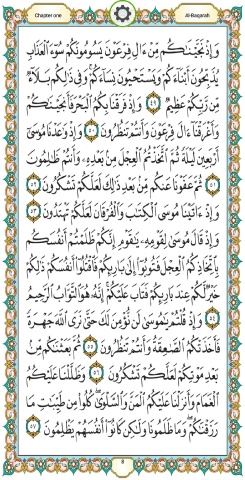 Chapter one
Al-Baqarah
وَإِذْ نَجَّيْنَاكُم مِّنْ ءَالِ فِرْعَوْنَ يَسُومُونَكُمْ سُوٓءَ ٱلْعَذَابِ
يُذَبِّحُونَ أَبْنَآءَكُمْ وَيَسْتَحْيُونَ نِسَآءَكُمْ وَفِى ذَٰلِكُم بَلَآءٌ
مِّن رَّبِّكُمْ عَظِيمٌ ٤٩ وَإِذْ فَرَقْنَا بِكُمُ ٱلْبَحْرَ فَأَنجَيْنَاكُمْ
وَأَغْرَقْنَآ ءَالَ فِرْعَوْنَ وَأَنتُمْ تَنظُرُونَ ٥٠ وَإِذْ وَٰعَدْنَا مُوسَىٰٓ
أَرْبَعِينَ لَيْلَةً ثُمَّ ٱتَّخَذْتُمُ ٱلْعِجْلَ مِنۢ بَعْدِهِۦ وَأَنتُمْ ظَٰلِمُونَ
٥١ ثُمَّ عَفَوْنَا عَنكُم مِّنۢ بَعْدِ ذَٰلِكَ لَعَلَّكُمْ تَشْكُرُونَ ٥٢
وَإِذْ ءَاتَيْنَا مُوسَى ٱلْكِتَٰبَ وَٱلْفُرْقَانَ لَعَلَّكُمْ تَهْتَدُونَ ٥٣
وَإِذْ قَالَ مُوسَىٰ لِقَوْمِهِۦ يَٰقَوْمِ إِنَّكُمْ ظَلَمْتُمْ أَنفُسَكُم
بِٱتِّخَاذِكُمُ ٱلْعِجْلَ فَتُوبُوٓا۟ إِلَىٰ بَارِئِكُمْ فَٱقْتُلُوٓا۟ أَنفُسَكُمْ ذَٰلِكُمْ
خَيْرٌ لَّكُمْ عِندَ بَارِئِكُمْ فَتَابَ عَلَيْكُمْ إِنَّهُۥ هُوَ ٱلتَّوَّابُ ٱلرَّحِيمُ
٥٤ وَإِذْ قُلْتُمْ يَٰمُوسَىٰ لَن نُّؤْمِنَ لَكَ حَتَّىٰ نَرَى ٱللَّهَ جَهْرَةً
فَأَخَذَتْكُمُ ٱلصَّٰعِقَةُ وَأَنتُمْ تَنظُرُونَ ٥٥ ثُمَّ بَعَثْنَٰكُم مِّنۢ
بَعْدِ مَوْتِكُمْ لَعَلَّكُمْ تَشْكُرُونَ ٥٦ وَظَلَّلْنَا عَلَيْكُمُ
ٱلْغَمَامَ وَأَنزَلْنَا عَلَيْكُمُ ٱلْمَنَّ وَٱلسَّلْوَىٰ كُلُوا۟ مِن طَيِّبَٰتِ مَا
رَزَقْنَٰكُمْ وَمَا ظَلَمُونَا وَلَٰكِن كَانُوٓا۟ أَنفُسَهُمْ يَظْلِمُونَ ٥٧
8